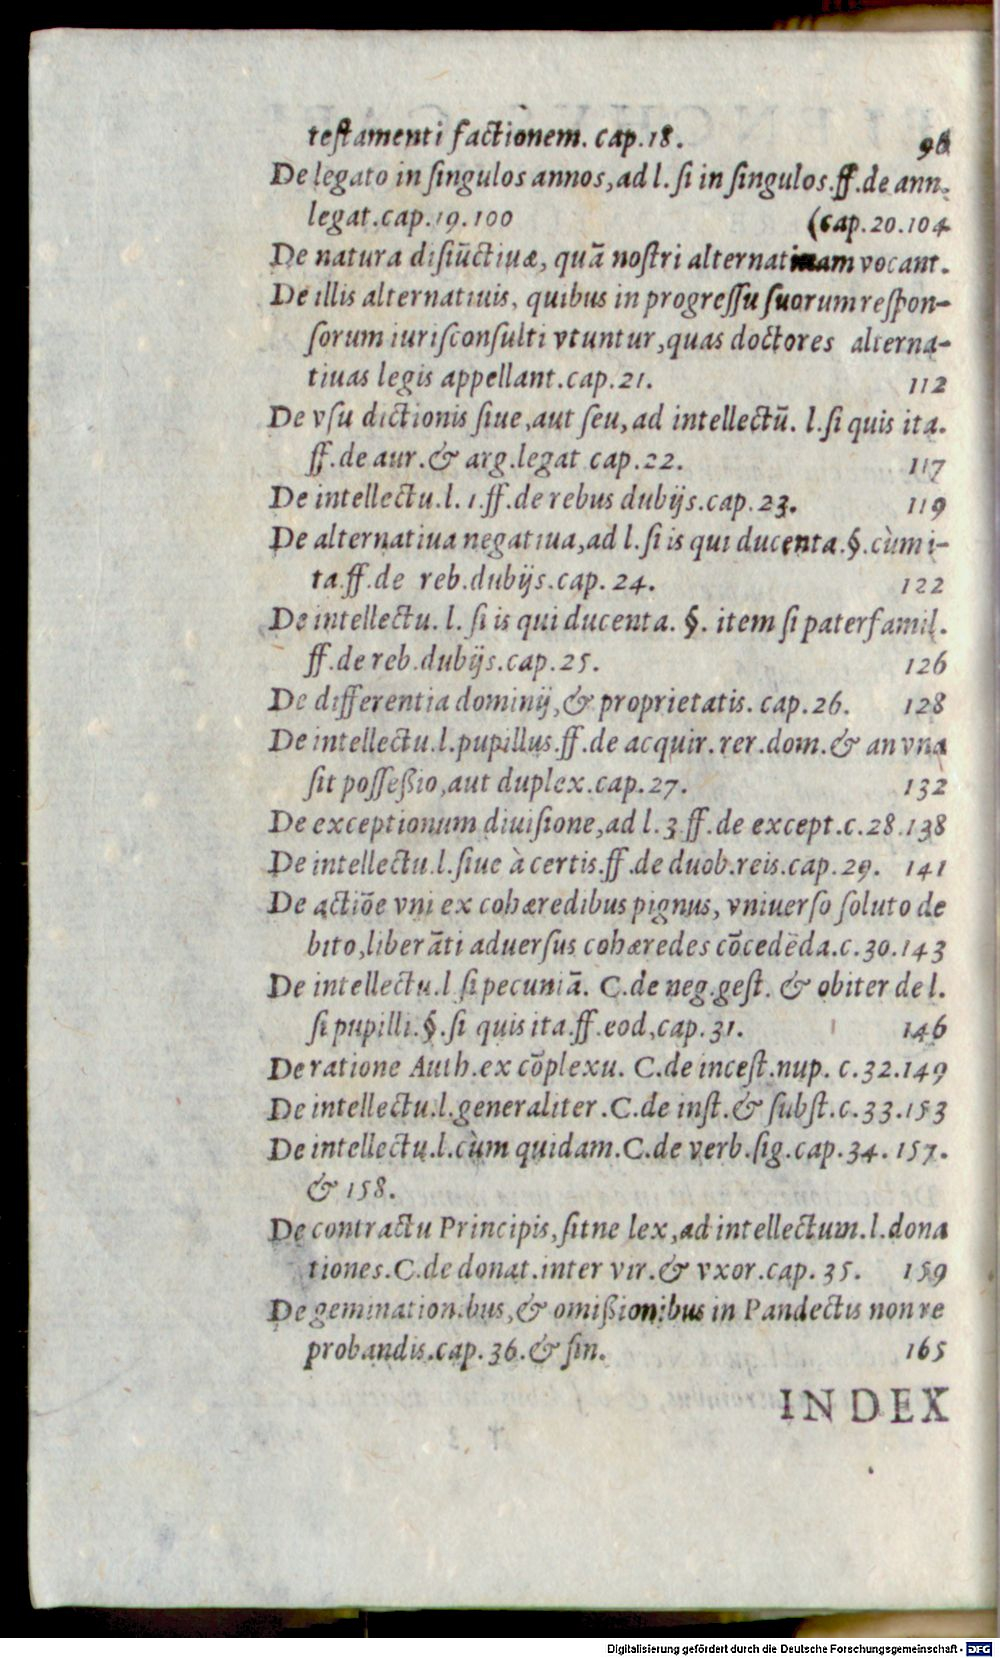 testamenti factionem. cap.18. 96
De legato in singulos annos, ad l. si in singulos.ff.de ann.
legat.cap.19.100 (cap.20.104
De natura disiūctiuæ, quā nostri alternatiuam vocant.
De illis alternatiuis, quibus in progressu suorum respon-
sorum iurisconsulti vtuntur, quas doctores alterna-
tiuas legis appellant.cap.21. 112
De vsu dictionis siue, aut seu, ad intellectū. l.si quis ita.
ff.de aur.& arg.legat cap.22. 117
De intellectu.l.1.ff.de rebus dubijs.cap.23. 119
De alternatiua negatiua, ad l.si is qui ducenta.§.cùm i-
ta.ff.de reb.dubijs.cap.24. 122
De intellectu. l. si is qui ducenta. §. item si paterfamil.
ff.de reb.dubijs.cap.25. 126
De differentia dominij, & proprietatis. cap.26. 128
De intellectu.l.pupillus.ff.de acquir.rer.dom.& an vna
sit posseßio, aut duplex.cap.27. 132
De exceptionum diuisione, ad l.3.ff.de except.c.28.138
De intellectu.l.siue à certis.ff.de duob.reis.cap.29. 141
De actiōe vni ex cohæredibus pignus, vniuerso soluto de
bito, liberāti aduersus cohæredes cōcedēda.c.30.143
De intellectu.l si pecuniā. C.de neg.gest. & obiter de l.
si pupilli.§.si quis ita.ff.eod,cap.31. 146
De ratione Auth.ex cōplexu. C.de incest.nup. c.32.149
De intellectu.l.generaliter.C.de inst.& subst.c.33.153
De intellectu.l.cùm quidam.C.de verb.sig.cap.34.157.
& 158.
De contractu Principis, sitne lex, ad intellectum.l.dona
tiones.C.de donat.inter vir.& vxor.cap.35. 159
De geminationibus, & omißionibus in Pandectis non re
probandis.cap.36.& fin. 165
INDEX
Digitalisierung gefördert durch die Deutsche Forschungsgemeinschaft - DFG